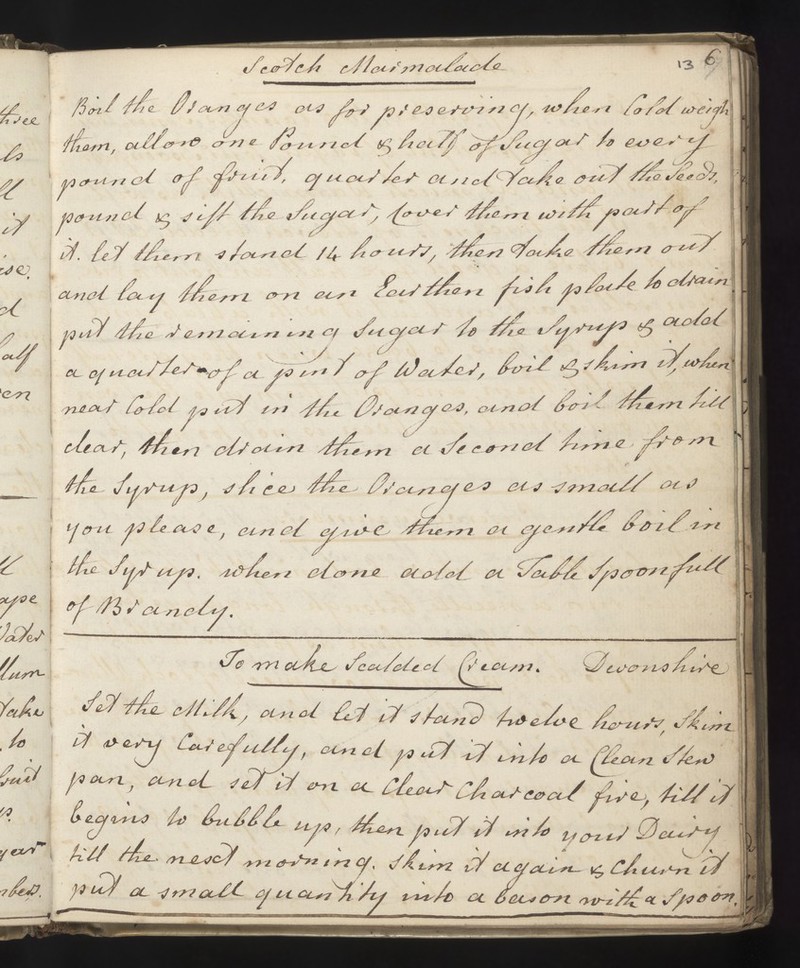 Scotch Marmalade
13 6
Boil the Oranges as for preserving, when Cold weigh
them, allow one Pound & half of Sugar to every
pound of fruit, quarter and take out the Seeds,
pound & sift the Sugar, Cover them with part of
it. let them stand 14 hours, then take them out
and lay them on an Earthen fish plate to drain
put the remaining Sugar to the Syrup & add
a quarter of a pint of Water, boil & skim it, when
near Cold put in the Oranges, and boil them till
clear, then drain them a Second time from
the Syrup, slice the Oranges as small as
you please, and give them a gentle boil in
the Syrup. when done add a Table Spoonfull
of Brandy.
To make Scalded Cream. Devonshire
Set the Milk, and let it stand twelve hours, Skim
it very Carefully, and put it into a Clean Stew
pan, and set it on a Clear Charcoal fire, till it
begins to bubble up, then put it into your Dairy
till the next morning. Skim it again & Churn it
put a small quantity into a bason with a Spoon.